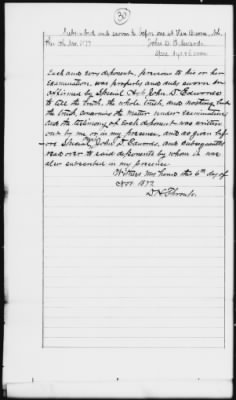 30
Subscribed and sworn to before me at Van Buren, Ark.
this 6th Nov 1877 John D. Edwards
Spec Agt &
Each and every deponent, previous to his or her
examination, was properly and duly sworn or
affirmed by Special Agt John D. Edwards
to tell the truth, the whole truth, and nothing but
the truth, concerning the matter under examination
and the testimony of each deponent was written
out by me or in my presence, and as given before
Special Agt John D. Edwards, and subsequently
read over to said deponents by whom it was
also subscribed in my presence
Witness my hand this 6th day of
Nov 1877